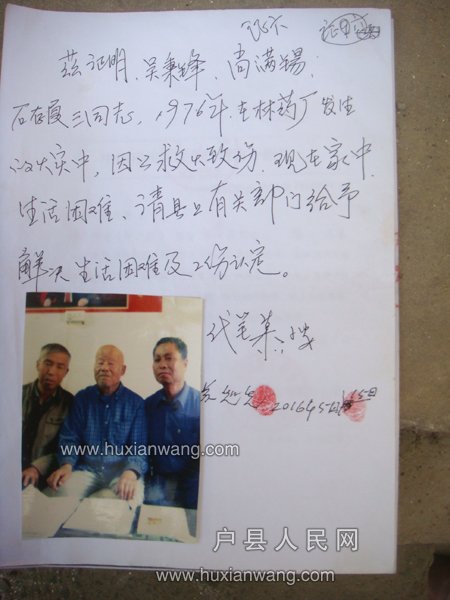 证明
兹证明，吴秉锋，尚满锡，
石存霞三同志，1976年，在林药厂发生
的火灾中，因公救火致伤，现在家中
生活困难、请县上有关部门给予
解决生活困难及工伤认定。
代笔
2016年5月15日
www.huxianwang.com
户县人民网
www.huxianwang.com